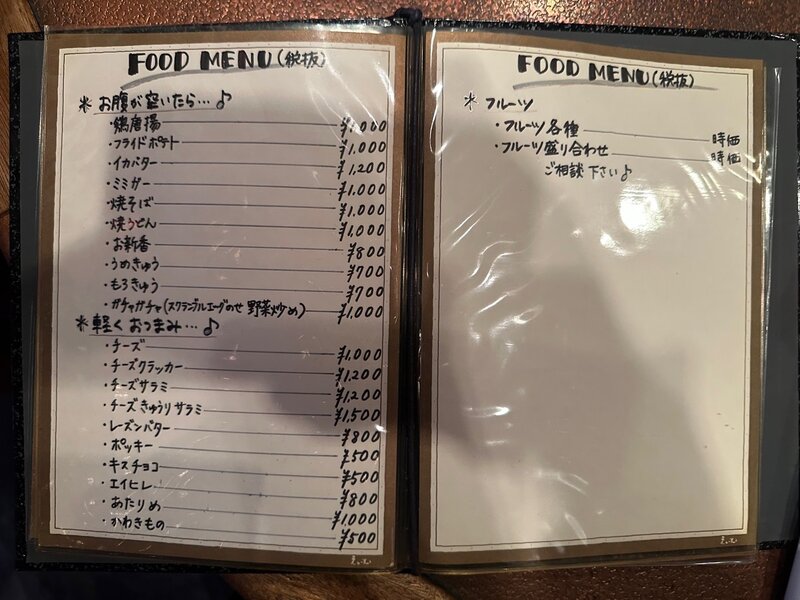 FOOD MENU (税抜)
* お腹が空いたら…♪
・鶏唐揚 ¥1,000
・フライドポテト ¥1,000
・イカバター ¥1,200
・ミミガー ¥1,000
・焼そば ¥1,000
・焼うどん ¥1,000
・お新香 ¥800
・うめきゅう ¥700
・もろきゅう ¥700
・ガチャガチャ(スクランブルエッグのせ 野菜炒め) ¥1,000
* 軽くおつまみ…♪
・チーズ ¥1,000
・チーズクラッカー ¥1,200
・チーズサラミ ¥1,200
・チーズきゅうりサラミ ¥1,500
・レーズンバター ¥800
・ポッキー ¥500
・キスチョコ ¥500
・エイヒレ ¥800
・あたりめ ¥1,000
・かわきもの ¥500
FOOD MENU (税抜)
* フルーツ
・フルーツ各種 時価
・フルーツ盛り合わせ 時価
ご相談下さい♪